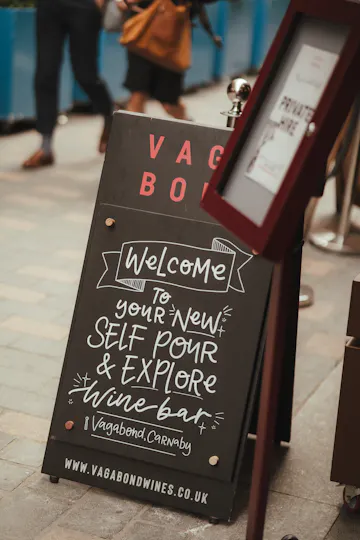 VAG
BO
Welcome
To
your New
SELF POUR
& EXPLORE
Wine bar
Vagabond.Carnaby
WWW.VAGABONDWINES.CO.UK
PRIVATE
HIRE